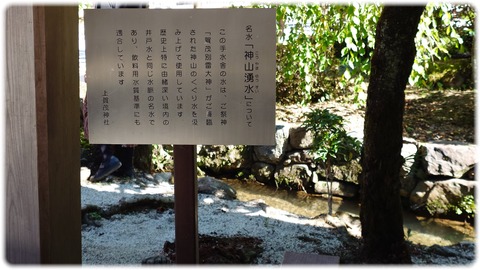 名水「神山湧水」について
この手水舎の水は、ご祭神
「賀茂別雷大神」がご降臨
された神山のくぐり水を汲
み上げて使用しています
歴史上特に由緒深い境内の
井戸水と同じ水脈の名水で
あり、飲料用水質基準にも
適合しています
上賀茂神社